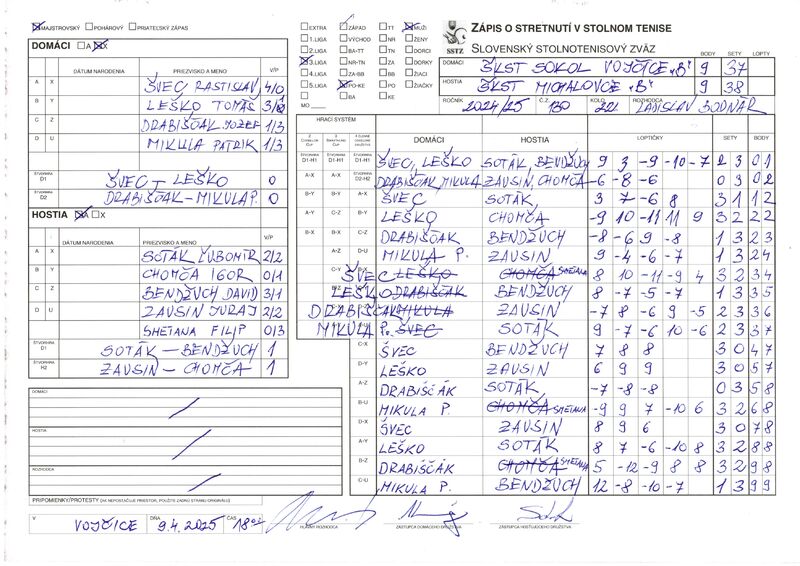 MAJSTROVSKÝ POHÁROVÝ PRIATEĽSKÝ ZÁPAS
EXTRA ZÁPAD TT MUŽI
1.LIGA VÝCHOD NR ŽENY
2.LIGA BA-TT TN DORCI
3.LIGA NR-TN ZA DORKY
4.LIGA ZA-BB BB ŽIACI
5.LIGA PO-KE PO ŽIAČKY
BA KE
MO
SSTZ
ZÁPIS O STRETNUTÍ V STOLNOM TENISE
SLOVENSKÝ STOLNOTENISOVÝ ZVÄZ
BODY SETY LOPTY
DOMÁCI ŠKST SOKOL VOJČICE „B" 9 37
HOSTIA ŠKST MICHALOVCE „B" 9 38
ROČNÍK 2024/25 Č.Z. 130 KOLO 22. ROZHODCA LADISLAV BODNÁR
DOMÁCI A X
DÁTUM NARODENIA PRIEZVISKO A MENO V/P
A X ŠVEC RASTISLAV 4/0
B Y LEŠKO TOMÁŠ
C Z DRABIŠČÁK JOZEF 1/3
D U MIKULA PATRIK 1/3
ŠTVORHRA D1 ŠVEC – LEŠKO 0
ŠTVORHRA D2 DRABIŠČÁK – MIKULA P. 0
HOSTIA A X
DÁTUM NARODENIA PRIEZVISKO A MENO V/P
A X SOTÁK ĽUBOMÍR 2/2
B Y CHOMČA IGOR 0/1
C Z BENDŽUCH DAVID 3/1
D U ZAUSIN JURAJ 2/2
SMETANA FILIP 0/3
ŠTVORHRA D1 SOTÁK – BENDŽUCH 1
ŠTVORHRA H2 ZAUSIN – CHOMČA 1
DOMÁCI
HOSTIA
ROZHODCA
PRIPOMIENKY/PROTESTY (AK NEPOSTAČUJE PRIESTOR, POUŽITE ZADNÚ STRANU ORIGINÁLU)
V VOJČICE DŇA 9.4.2025 ČAS 18
HRACÍ SYSTÉM
DOMÁCI HOSTIA LOPTIČKY SETY BODY
D1-H1 D1-H1 D1-H1 ŠVEC, LEŠKO SOTÁK, BENDŽUCH 9 3 -9 -10 -7 2 3 0 1
A-X A-X D2-H2 DRABIŠČÁK, MIKULA ZAUSIN, CHOMČA -6 -8 -6 0 3 0 2
B-Y B-Y A-X ŠVEC SOTÁK 3 7 -6 8 3 1 1 2
A-Y C-Z B-Y LEŠKO CHOMČA -9 10 -11 11 9 3 2 2 2
B-X B-X C-Z DRABIŠČÁK BENDŽUCH -8 -6 9 -8 1 3 2 3
A-Y D-U MIKULA P. ZAUSIN 9 -4 -6 -7 1 3 2 4
ŠVEC LEŠKO CHOMČA SMETANA 8 10 -11 -9 4 3 2 3 4
LEŠKO DRABIŠČÁK BENDŽUCH 8 -7 -5 -7 1 3 3 5
DRABIŠČÁK MIKULA ZAUSIN -7 8 -6 9 -5 2 3 3 6
MIKULA P. ŠVEC SOTÁK 9 -7 -6 10 -6 2 3 3 7
C-X ŠVEC BENDŽUCH 7 8 8 3 0 4 7
D-Y LEŠKO ZAUSIN 6 9 9 3 0 5 7
A-Z DRABIŠČÁK SOTÁK -7 -8 -8 0 3 5 8
B-U MIKULA P. CHOMČA SMETANA -9 9 7 -10 6 3 2 6 8
D-X ŠVEC ZAUSIN 8 9 6 3 0 7 8
A-Y LEŠKO SOTÁK 8 7 -6 -10 8 3 2 8 8
B-Z DRABIŠČÁK CHOMČA SMETANA 5 -12 -9 8 8 3 2 9 8
C-U MIKULA P. BENDŽUCH 12 -8 -10 -7 1 3 9 9
HLAVNÝ ROZHODCA ZÁSTUPCA DOMÁCEHO DRUŽSTVA ZÁSTUPCA HOSŤUJÚCEHO DRUŽSTVA